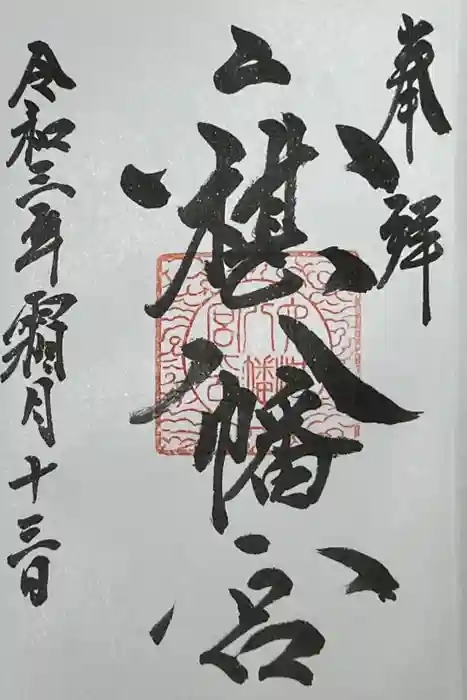 奉拝
旗八幡宮
令和三年霜月十三日